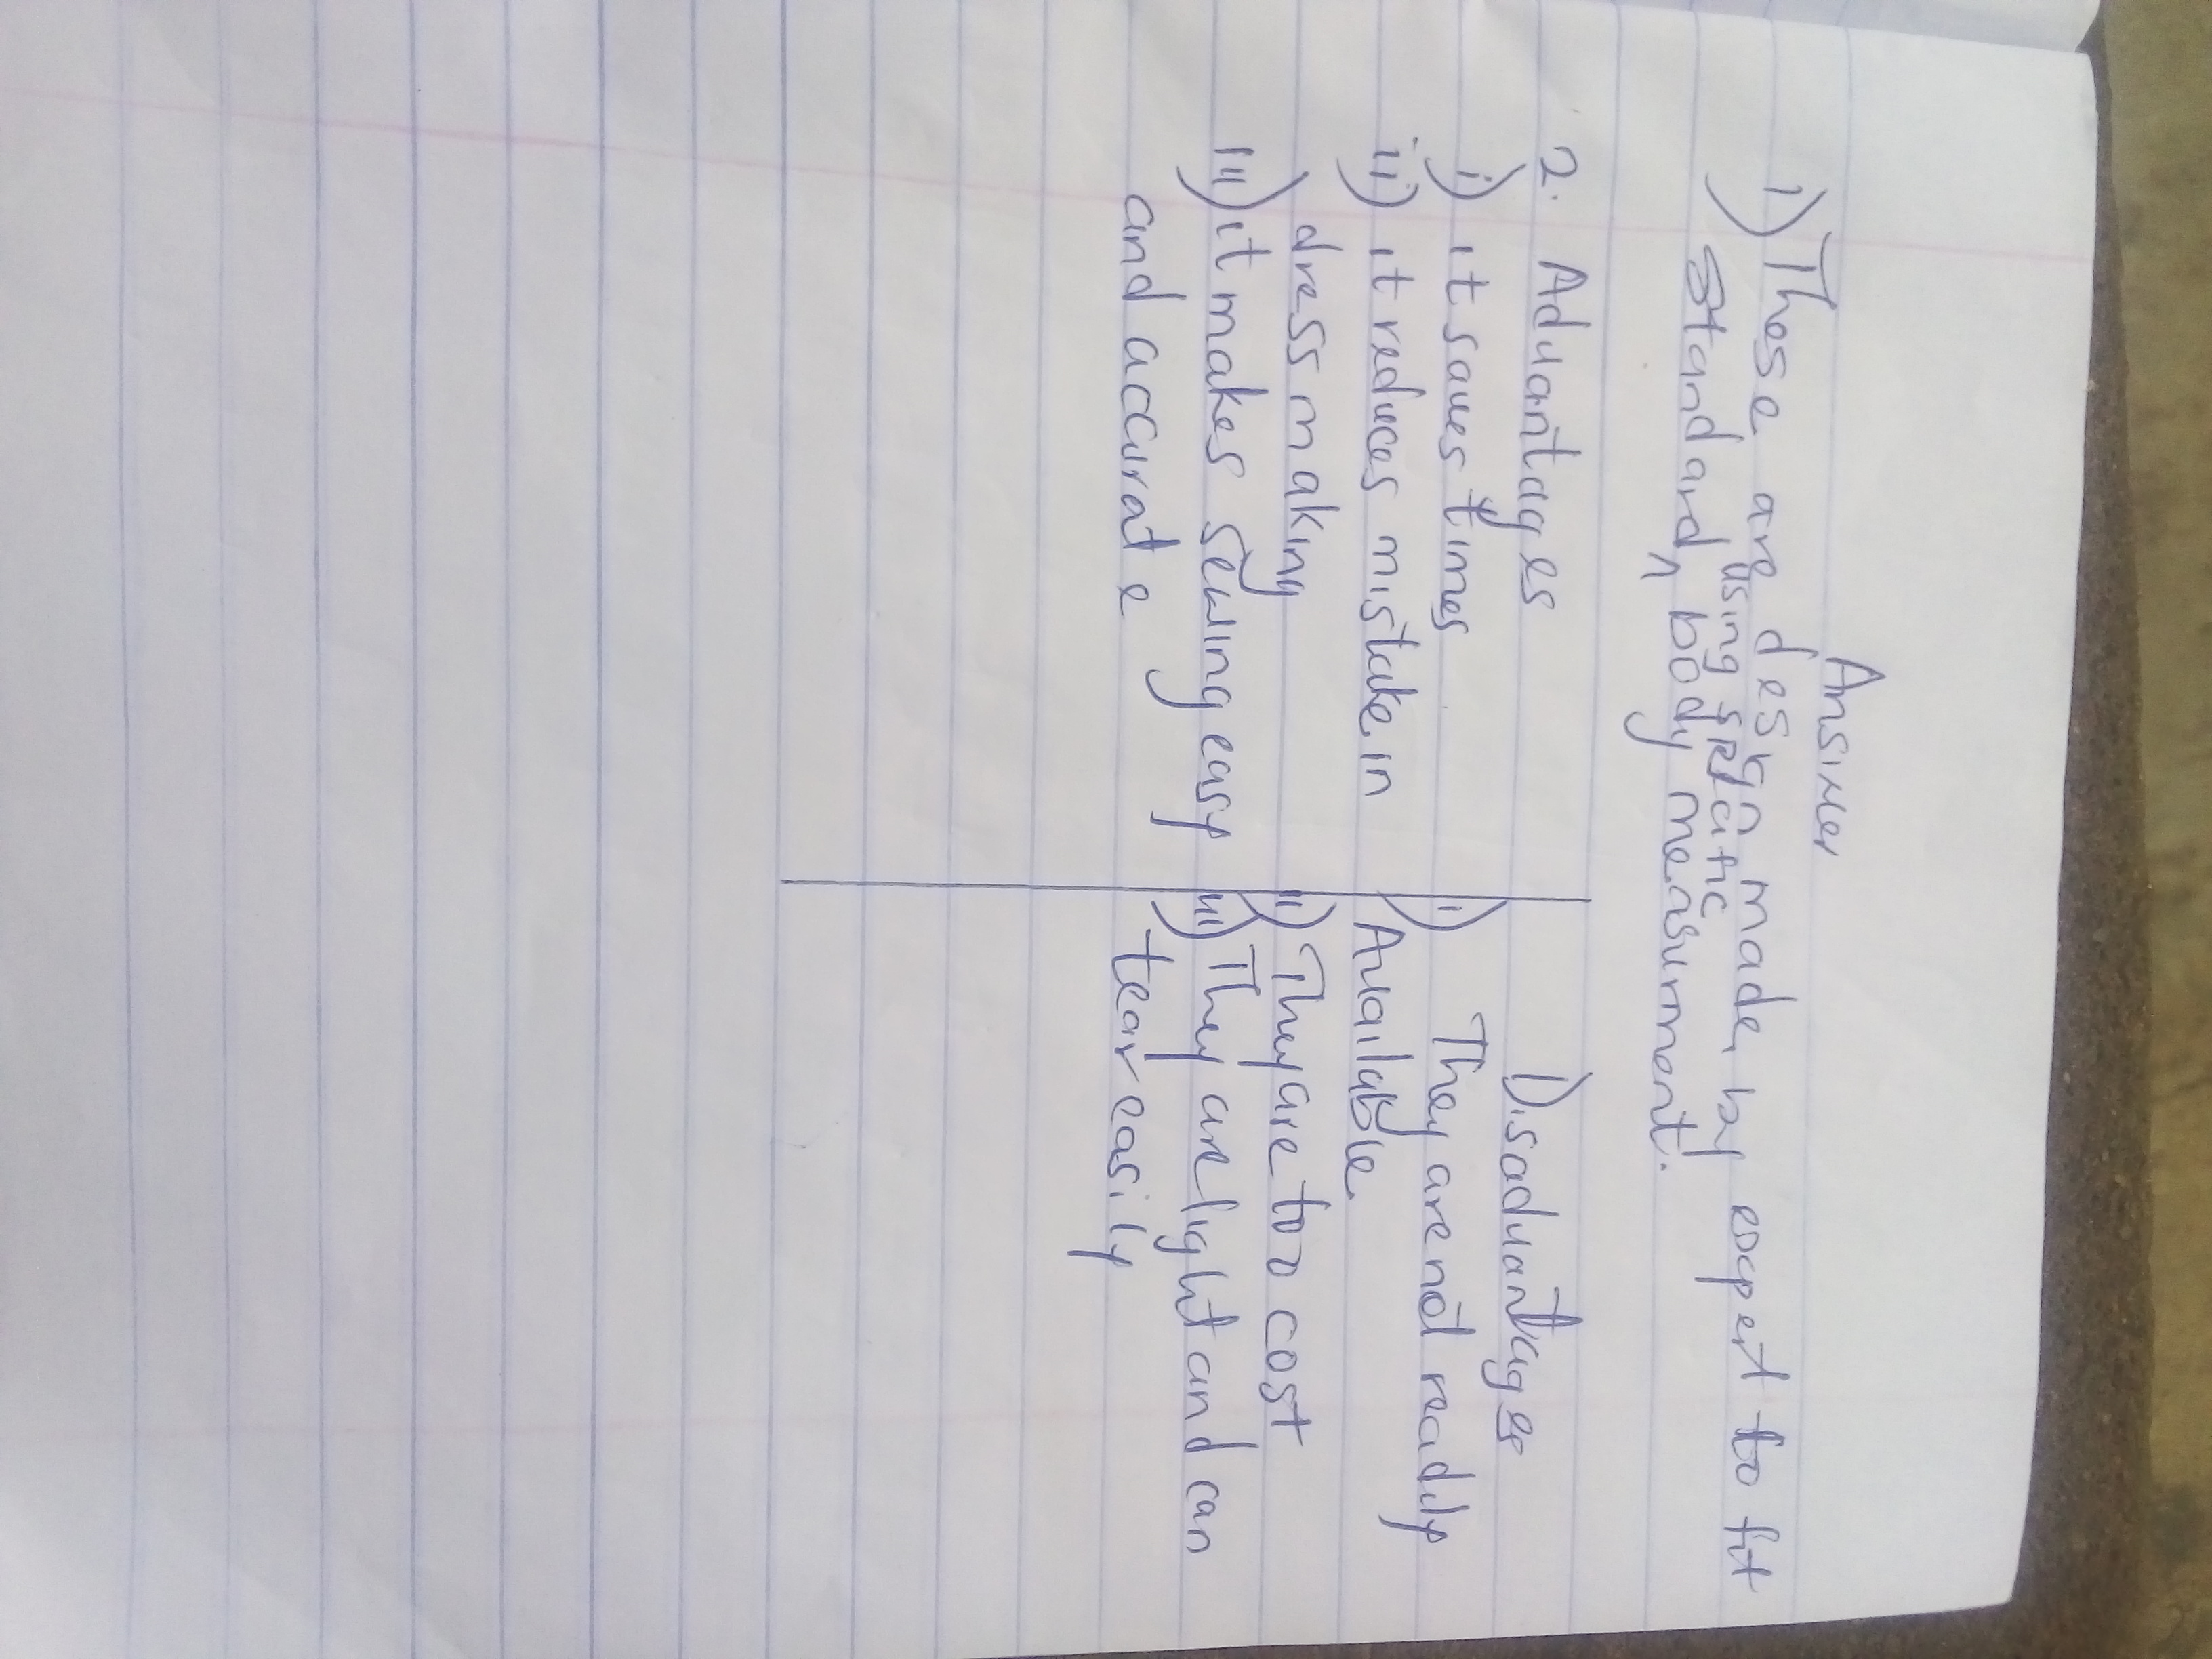 Answer
1) These are design made by expert to fit
using spatific
standard ^ body measurment.
2. Advantages
i) it saves times
ii) it reduces mistake in
dress making
iii) it makes sewing easy
and accurate
Disadvantages
i) They are not readily
Available
ii) They are too cost
iii) They are light and can
tear easily